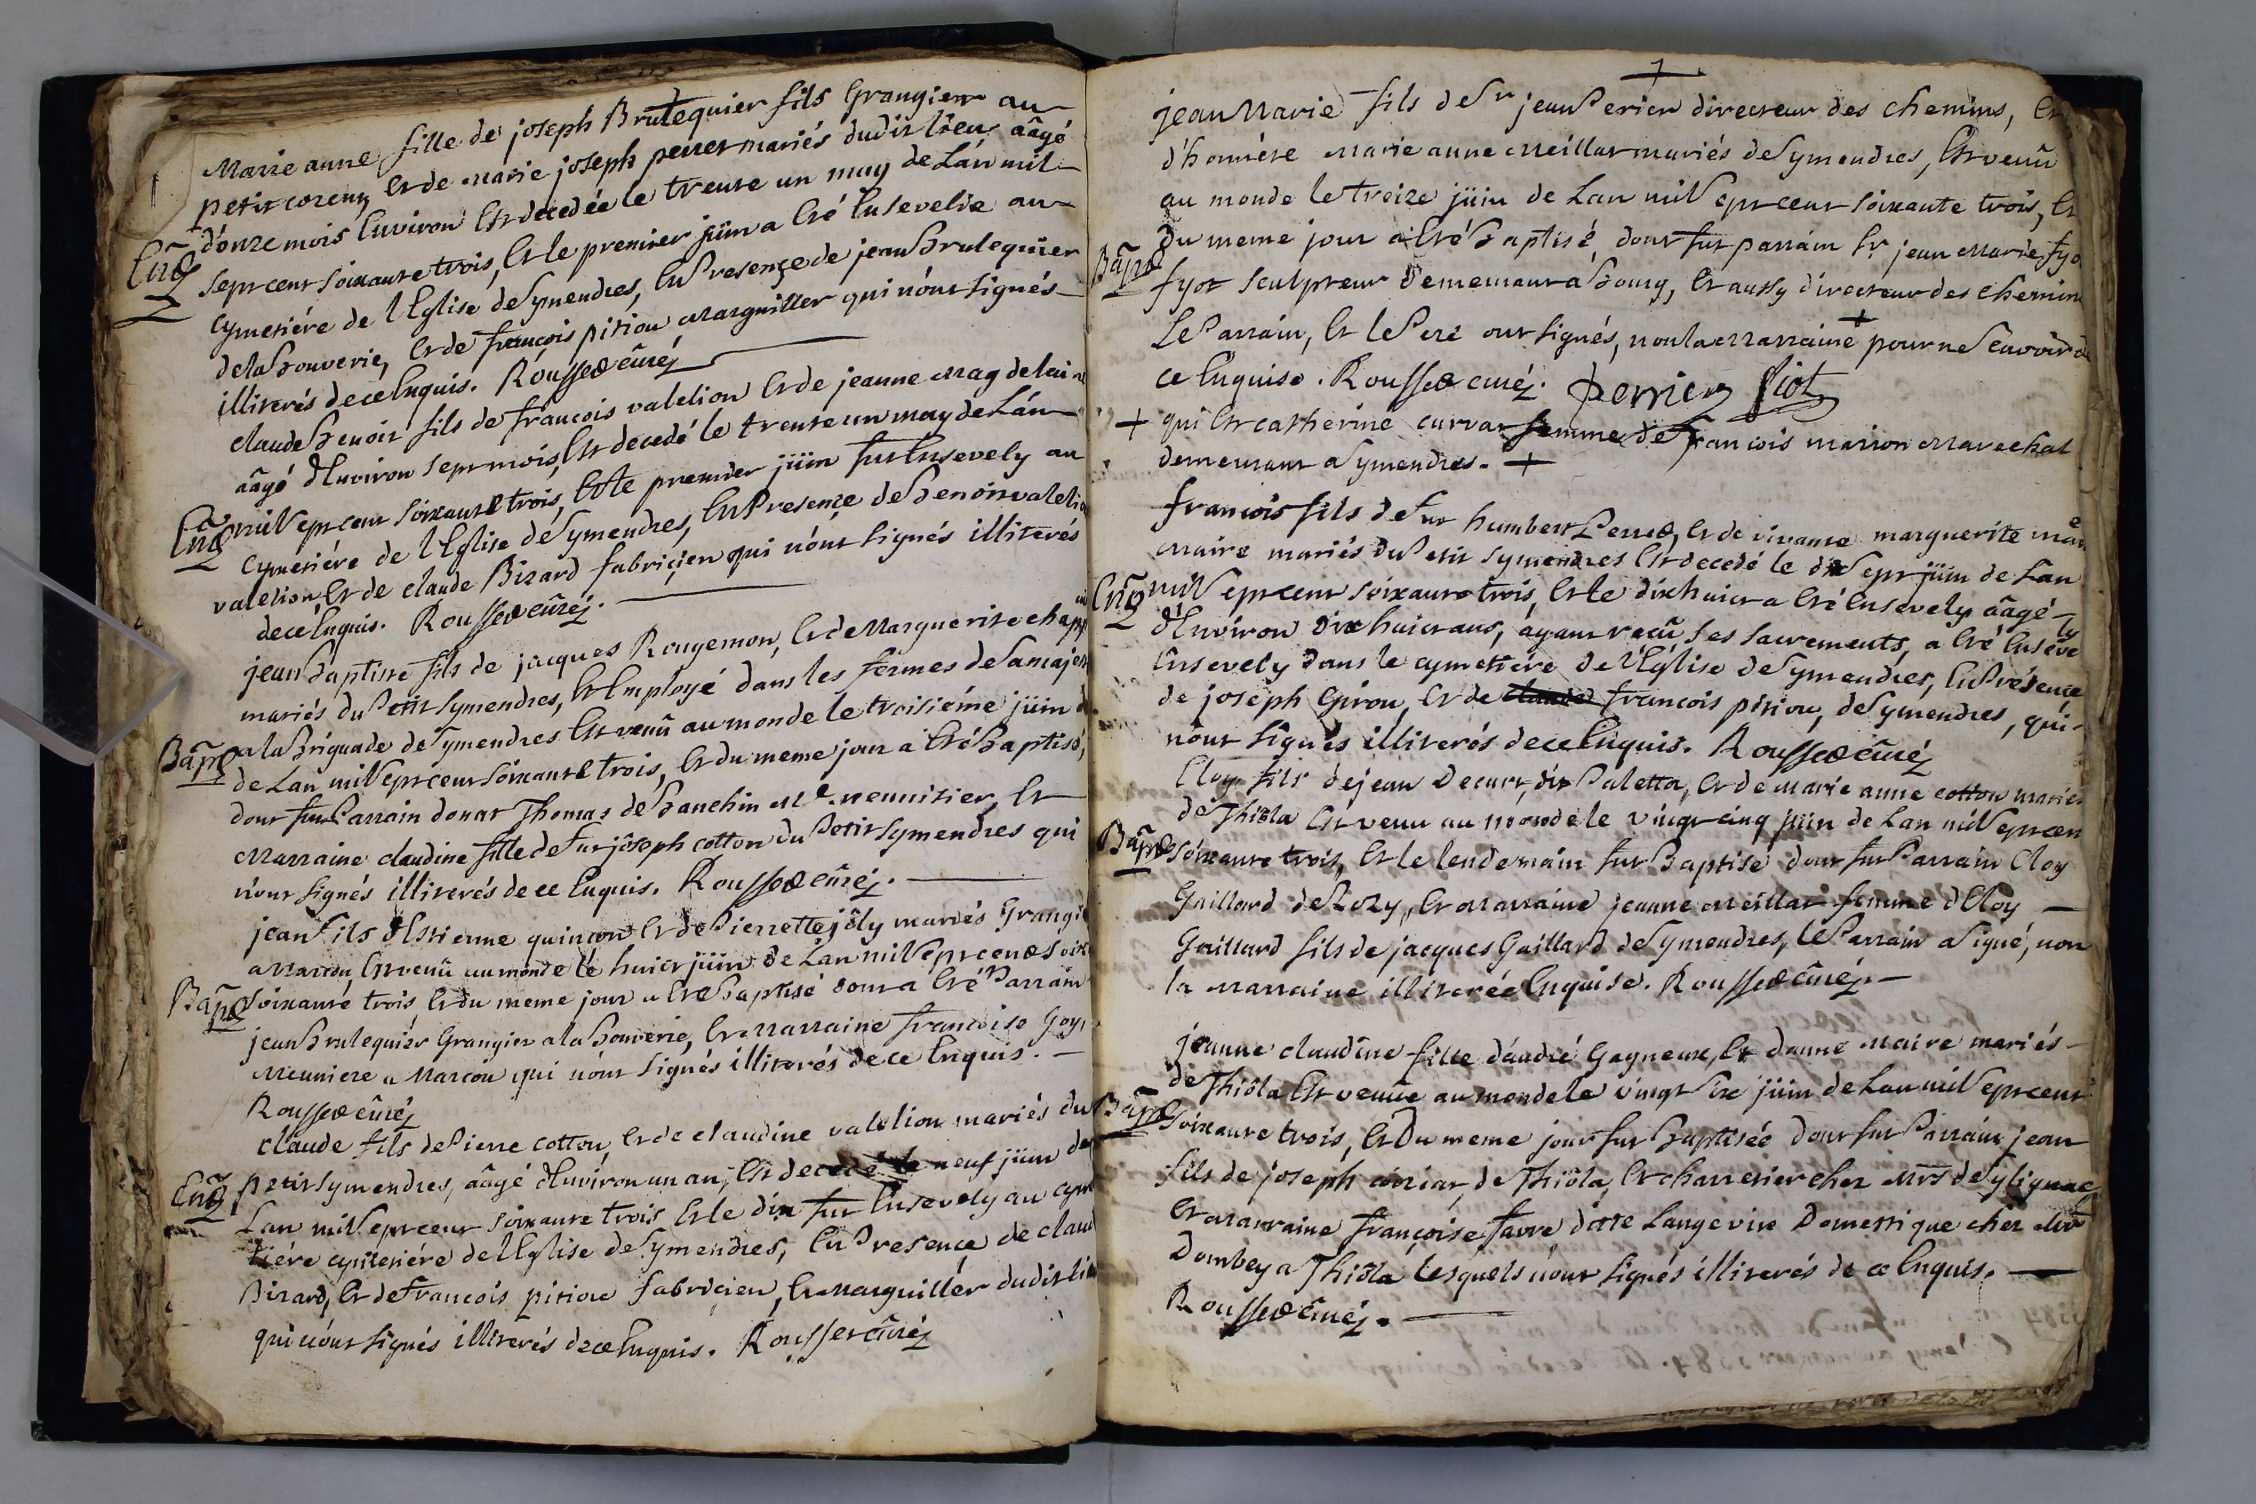 Marie anne fille de joseph Brulequier fils Grangier au
petit corcuy, Et de marie joseph perret mariés dudit lieu aâgé
d'onze mois Environ Est decedée le trente un may de Lan mil
Enz
sept cent soixante trois, Et le premier jüin a Eté Ensevelie au
cymetiére de l'Eglise de Symendres, En Presençe de jean Brulequier
de la Bouverie, Et de françois pitiou Marguiller qui n'ont signés
illiterés de ce Enquis. Rousset curéz
claude Benoit fils de françois valelion Et de jeanne Magdelaine
aâgé d'Environ sept mois, Est decedé le trente un may de Lan
Enz
mil sept cent soixante trois, Et le premier jüin fut Ensevely au
cymetiére de l'Eglise de Symendres, En Presence de Benoit valelion
valelion Et de claude Bizard fabriçien qui n'ont signés illiterés
de ce Enquis. Rousset curéz.
jean Baptiste fils de jacques Rougemon, Et de Marguerite
mariés du Petit Symendres, Et Employé dans les fermes de Sa majesté
a la Briguade de Symendres Est venû au monde le troisiéme jüin
Bapz
de Lan mil sept cent soixante trois, Et du meme jour a Eté Baptisé,
dont fut Parrain donat Thomas de Banchin Me menuisier, Et
Marraine claudine fille de fut joseph cotton du Petit Symendres qui
n'ont signés illiterés de ce Enquis. Rousset curéz.
jean fils d'Estienne quinçon Et de Pierrette joly mariés Grangiers
a Marcou, Est venû au monde le huict jüin de Lan mil sept cent soix
Bapz
soixante trois, Et du meme jour a Eté Baptisé dont a Eté Parrain
jean Brulequier Grangier a la Bouverie, Et Marraine françoise Goy,
Meuniere a Marcou qui n'ont signés illiterés de ce Enquis.
Rousset curéz
claude fils de Pierre cotton, Et de claudine valelion mariés du
Enz
petit Symendres, aâgé d'Environ un an, Est decedé le neuf jüin de
Lan mil sept cent soixante trois Et le dix fut Ensevely au cyme
tiére cymetiére de l'Eglise de Symendres, En Presençe de claude
Bizard, Et de François pitiou fabriçien, Et Marguiller dudit lieu
qui n'ont signés illiterés de ce Enquis. Rousset curéz
jean Marie fils de Sr jean Perier directeur des chemins, Et
d'honnéte Marie anne Meillat mariés de Symendres, Est venû
au monde le treize jüin de Lan mil sept cent soixante trois, Et
du meme jour a Eté Baptisé, dont fut parrain Sr jean Marie fyo
Bapz
fyot sculpteur demeurant a Bourg, Et aussy directeur des chemins
Le Parrain, Et le Pere ont signés, non la Marraine + pour ne Scavoir de
ce Enquise. Rousset curéz. Perrier fiot
+ qui Est catherine curvat femme de françois marion Marechal
demeurant a Symendres. +
françois fils de fut humbert Perret, Et de vivante marguerite
Maire mariés du Petit Symendres Est decedé le dix sept jüin de Lan
Enz
mil sept cent soixante trois, Et le dix huict a Eté Ensevely aâgé
d'Environ dix huict ans, ayant reçû ses sacrements, a Eté Enseve
Ensevely dans le cymetiére de l'Eglise de Symendres, En Présence
de joseph Girou, Et de claude françois pitiou, de Symendres, qui
n'ont signés illiterés de ce Enquis. Rousset curéz
Eloy fils de jean Decurt, dit Paletta, Et de marie anne cotton mariés
de Thiôla Est venu au monde le vingt cinq jüin de Lan mil sept cent
Bapz
soixante trois, Et le lendemain fut Baptisé dont fut Parrain Eloy
Gaillard de Lozy, Et Marraine jeanne Meillat femme d'Eloy
Gaillard fils de jacques Gaillard de Symendres, Le Parrain a signé, non
la Marraine illiterée Enquise. Rousset curéz.
jeanne claudine fille d'andré Gagneux, Et d'anne Maire mariés
de Thiôla Est venüe au monde le vingt six jüin de Lan mil sept cent
Bapz
soixante trois, Et Du meme jour fut Baptisée dont fut Parrain jean
fils de joseph de Thiôla, Et charretier chez Mrs de Sylignac
Et Marraine françoise favre ditte Langevine Domestique chez Mr
Dombey a Thiôla Lesquels n'ont signés illiterés de ce Enquis.
Rousset curéz.